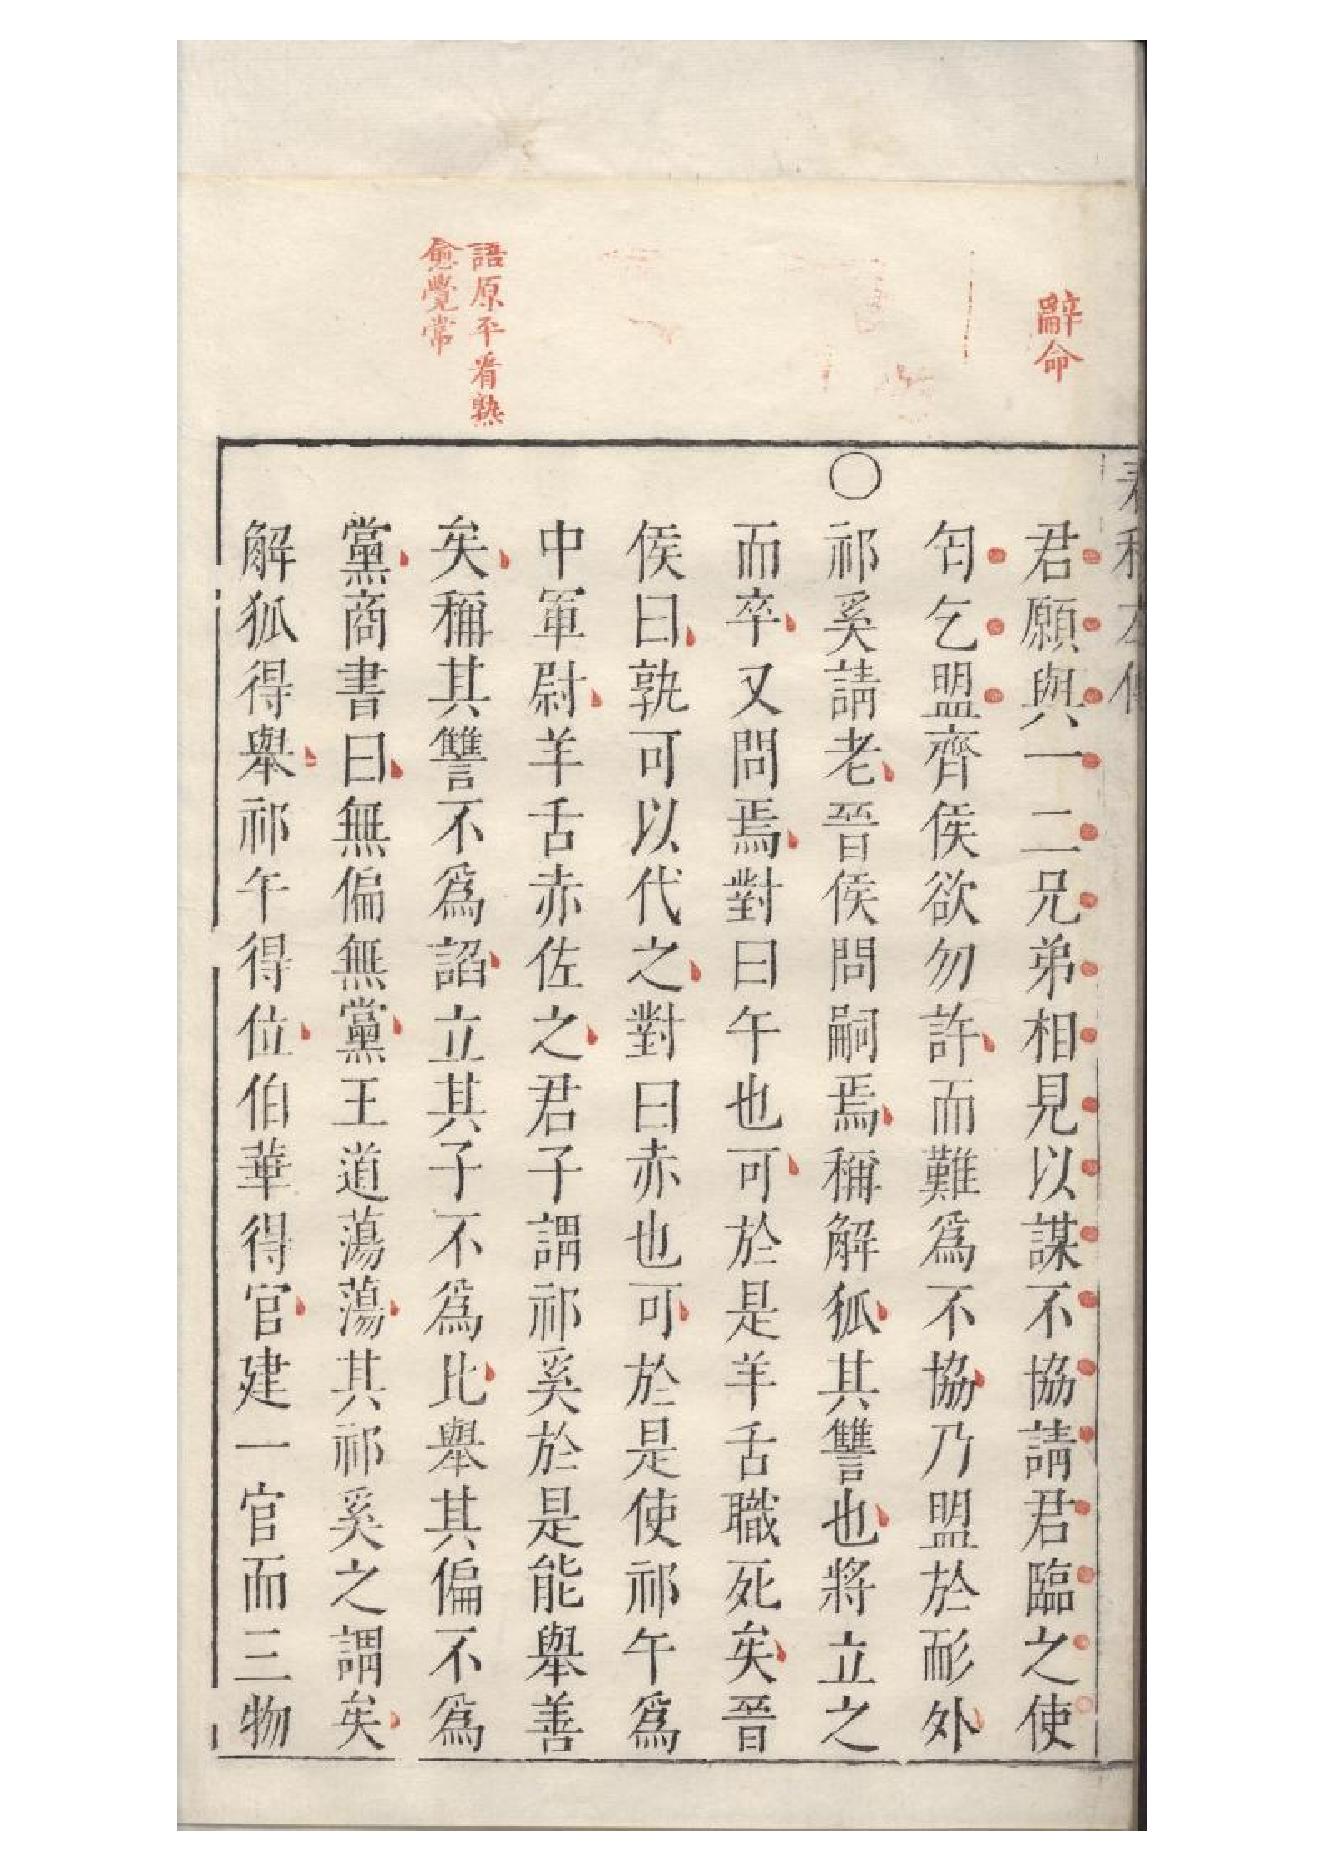 辭命
君願與一二兄弟相見以謀不協請君臨之使
匄乞盟齊侯欲勿許而難爲不協乃盟於耏外
○祁奚請老晉侯問嗣焉稱解狐其讐也將立之
而卒又問焉對曰午也可於是羊舌職死矣晉
侯曰孰可以代之對曰赤也可於是使祁午爲
中軍尉羊舌赤佐之君子謂祁奚於是能舉善
語原平看熟
愈覺常
矣稱其讐不爲諂立其子不爲比舉其偏不爲
黨商書曰無偏無黨王道蕩蕩其祁奚之謂矣
解狐得舉祁午得位伯華得官建一官而三物